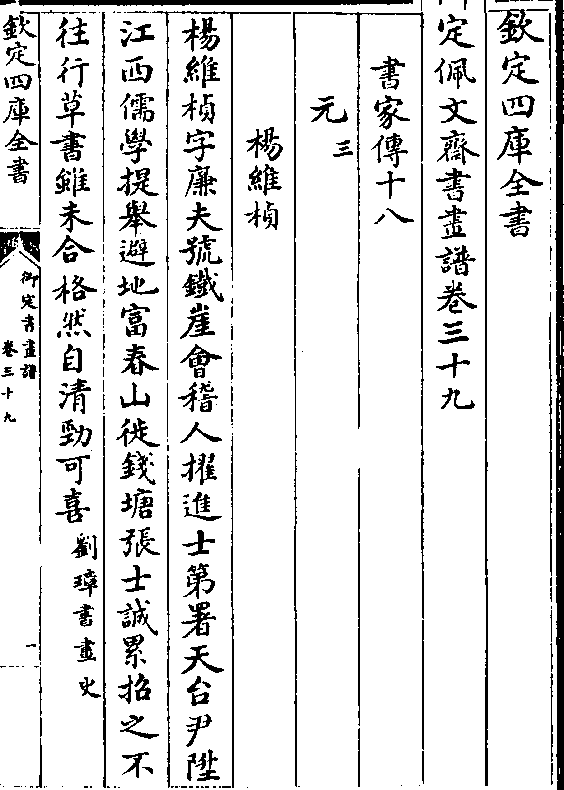 欽定四庫全書
御定佩文齋書畫譜卷三十九
書家傳十八
元三
楊維楨
楊維楨字廉夫號鐵崖會稽人擢進士第署天台尹陞
江西儒學提舉避地富春山徙錢塘張士誠累招之不
往行草書雖未合格然自清勁可喜劉璋書畫史
欽定四庫全書
御定書畫譜
卷三十九
一